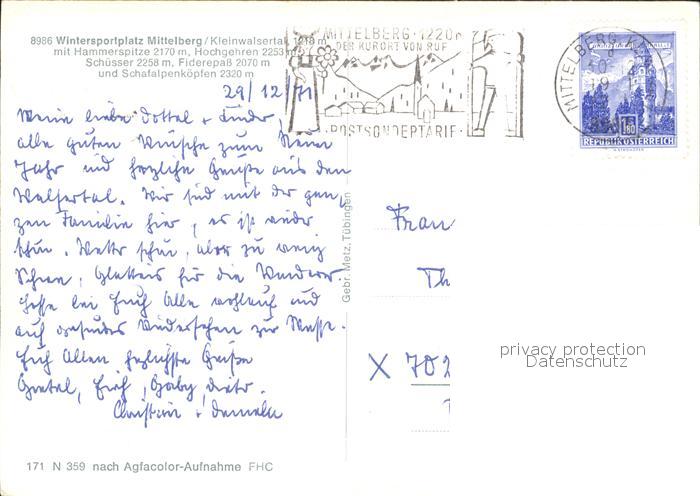 8986 Wintersportplatz Mittelberg/Kleinwalsertal, 1218 m
mit Hammerspitze 2170 m, Hochgehren 2253 m
Schüsser 2258 m, Fiderepaß 2070 m
und Schafalpenköpfen 2320 m
MITTELBERG · 1220 m
DER KURORT VON RUF
POSTSONDERTARIF
MITTELBERG
REPUBLIK ÖSTERREICH
29/12/71
Meine liebe Dottel + Kinder,
alle guten Wünsche zum Neuen
Jahr und herzliche Grüße aus dem
Walsertal. Wir sind mit der gan-
zen Familie hier, es ist wieder
schön. Wetter schön, aber zu wenig
Schnee, Glatteis für die Wanderer.
Hoffe bei Euch Alle wohlauf und
auf gesundes Wiedersehen zur Messe.
Euch Allen herzlichste Grüße
Gretel, Erich, Gaby, Dieter.
Christian +
Gebr. Metz, Tübingen
Frau
Th
X 702
privacy protection
Datenschutz
171 N 359 nach Agfacolor-Aufnahme FHC